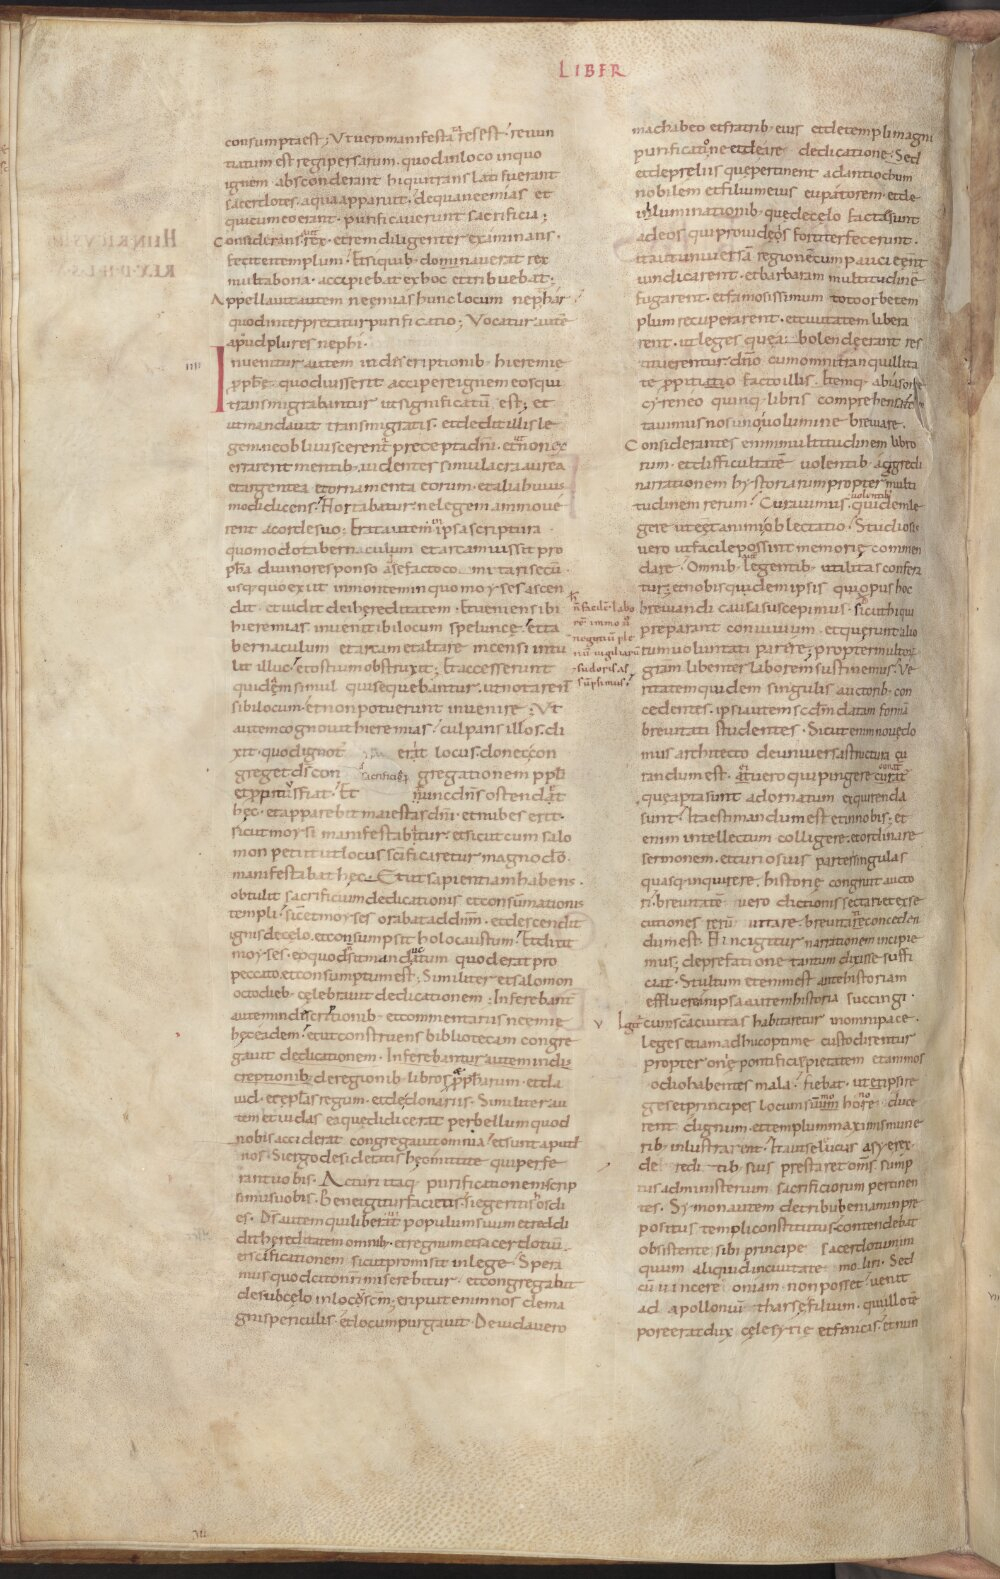 LIBER
consumpta est; Ut uero manifesta res est. renun
tiatum est regi persarum. quod in loco in quo
ignem absconderant hi qui translati fuerant
sacerdotes. aqua apparuit. de qua neemias et
qui cum eo erant. purificauerunt sacrificia;
Considerans rex. et rem diligenter examinans.
fecit ei templum. Et si quib; donauerat rex
multa bona. accipiebat ex hoc et tribuebat;
Appellauit autem neemias hunc locum nephar
quod interpretatur purificatio; Vocatur autē
apud plures nephi.
IIII
Inuenitur autem in descriptionib; hieremie
pphe. quod iusserit accipere ignem eos qui
transmigrabantur ut significatū est; et
ut mandauit transmigratis. et dedit illis le
gem. ne obliuiscerent precepta dni. et non ex
errarent mentib; uidentes simulacra aurea
et argentea et ornamenta eorum. et alia huius
modi dicens. Hortabatur ne legem ammoue
rent a corde suo; Erat autem in ipsa scriptura
quomodo tabernaculum et arcam iussit pro
pha diuino responso ad se facto comitari secū
usq; quo exiit in montem in quo moyses ascen
dit. et uidit dei hereditatem. Et ueniens ibi
hieremias. inuenit ibi locum spelunce. et ta
bernaculum et arcam et altare incensi intu
lit illuc. et ostium obstruxit; Et accesserunt
quidem simul qui sequebantur. ut notarent
sibi locum. et non potuerunt inuenire; Ut
autem cognouit hieremias. culpans illos. di
xit. quod ignotus erit locus. donec con
greget ds con gregationem ppli
sacrificii
et ppitius fiat. Et nunc dns ostendat
hec. et apparebit maiestas dni. et nubes erit.
sicut moysi manifestabitur. et sicut cum salo
mon petiit ut locus scificaretur magno do.
manifestabat hec. Et ut sapientiam habens.
obtulit sacrificium dedicationis et consūmationis
templi. sic et moyses orabat ad dnm. et descendit
ignis de celo. et consumpsit holocaustum. Et dixit
moyses. eo quod sit manducatum quod erat pro
peccato. et consumptum est; Similiter et salomon
octo dieb; celebrauit dedicationem; Inferebant
autem in discriptionib; et commentariis neemie
hec eadem. et ut construens bibliotecam congre
gauit dedicationem. Inferebantur autem in dis
creptionib; de regionib; libros ppharum. et da
uid. et eplas regum. et de donariis. Similiter au
tem et iudas ea que didicerat per bellum quod
nobis acciderat congregauit omnia. et sunt apud
nos. Si ergo desideratis hec. mittite qui perfe
rant uobis. Acturi itaq; purificationem scrip
simus uobis. Bene igitur facietis. si egeritis hos di
es. Ds autem qui liberauit populum suum et reddi
dit hereditatem omnib; et regnum et sacerdotiū.
et scificationem sicut promisit in lege. Spera
mus quod cito nri miserebitur. et congregabit
de sub celo in locum scm; eripuit enim nos de ma
gnis periculis. et locum purgauit. De iuda uero
machabeo et fratrib; eius et de templi magni
purificatione et de are dedicatione. Sed
et de preliis que pertinent ad antiochum
nobilem et filium eius eupatorem. et de
illuminationib; que de celo facta sunt
ad eos qui pro iudeos fortiter fecerunt.
ita ut uniuersam regionem cum pauci eent
uindicarent. et barbaram multitudinē
fugarent. et famosissimum toto orbe tem
plum recuperarent. et ciuitatem libera
rent. ut leges que abolende erant res
tituerentur. dno cum omni tranquillita
te ppitiatio facto illis. Itemq; ab iasone
cyreneo quinq; libris comprehensa temp
tauimus nos uno uolumine breuiare.
Considerantes enim multitudinem libro
rum. et difficultatē uolentib; aggredi
narrationem hystoriarum propter multi
tudinem rerum; Curauimus uolentib; quidem le
gere ut eet animi oblectatio. Studiosi
uero ut facile possint memorie commen
dare. Omnib; autem legentib; utilitas confera
tur; et nobis quidem ipsis qui opus hoc
breuiandi causa suscepimus.
n facilē labo
rē immo ū
negotiū ple
nū uigiliarū
sudoris as
sūpsimus;
sicut hi qui
preparant conuiuium. et querunt alio
rum uoluntati parere; propter multorū
gram libenter laborem sustinemus. Ve
ritatem quidem singulis auctorib; con
cedentes. ipsi autem scdm datam formā
breuitati studentes. Sicut enim noue do
mus architecto de uniuersa structura cu
randum est. ei uero qui pingere curat
que apta sunt ad ornatum exquirenda
sunt. Ita estimandum est et in nobis; et
enim intellectum colligere. et ordinare
sermonem. et curiosius partes singulas
quasq; inquirere. historie congruit aucto
ri. breuitatē uero dictionis sectari. et exse
cutiones rerū uitare. breuianti conceden
dum est. Hinc igitur narrationem incipie
mus; de prefatione tantum dixisse suffi
ciat. Stultum etenim est ante historiam
effluere. in ipsa autem historia succingi.
V
Igitur cum sca ciuitas habitaretur in omni pace.
leges etiam adhuc optime custodirentur
propter onie pontificis pietatem et animos
odio habentes mala. fiebat. ut et ipsi re
ges et principes locum summo honore duce
rent dignum. et templum maximis mune
rib; inlustrarent. Ita ut seleucus asye rex.
de redi tib; suis prestaret oms sump
tus ad ministerium sacrificiorum pertinen
tes. Symon autem de tribu beniamin pre
positus templi constitutus. contendebat
obsistente sibi principe sacerdotum in
quum aliquid in ciuitate moliri. Sed
cū uincere oniam non posset. uenit
ad apollonium tharsee filium. qui illo tē
pore erat dux celesyrie et fenicis. et nun